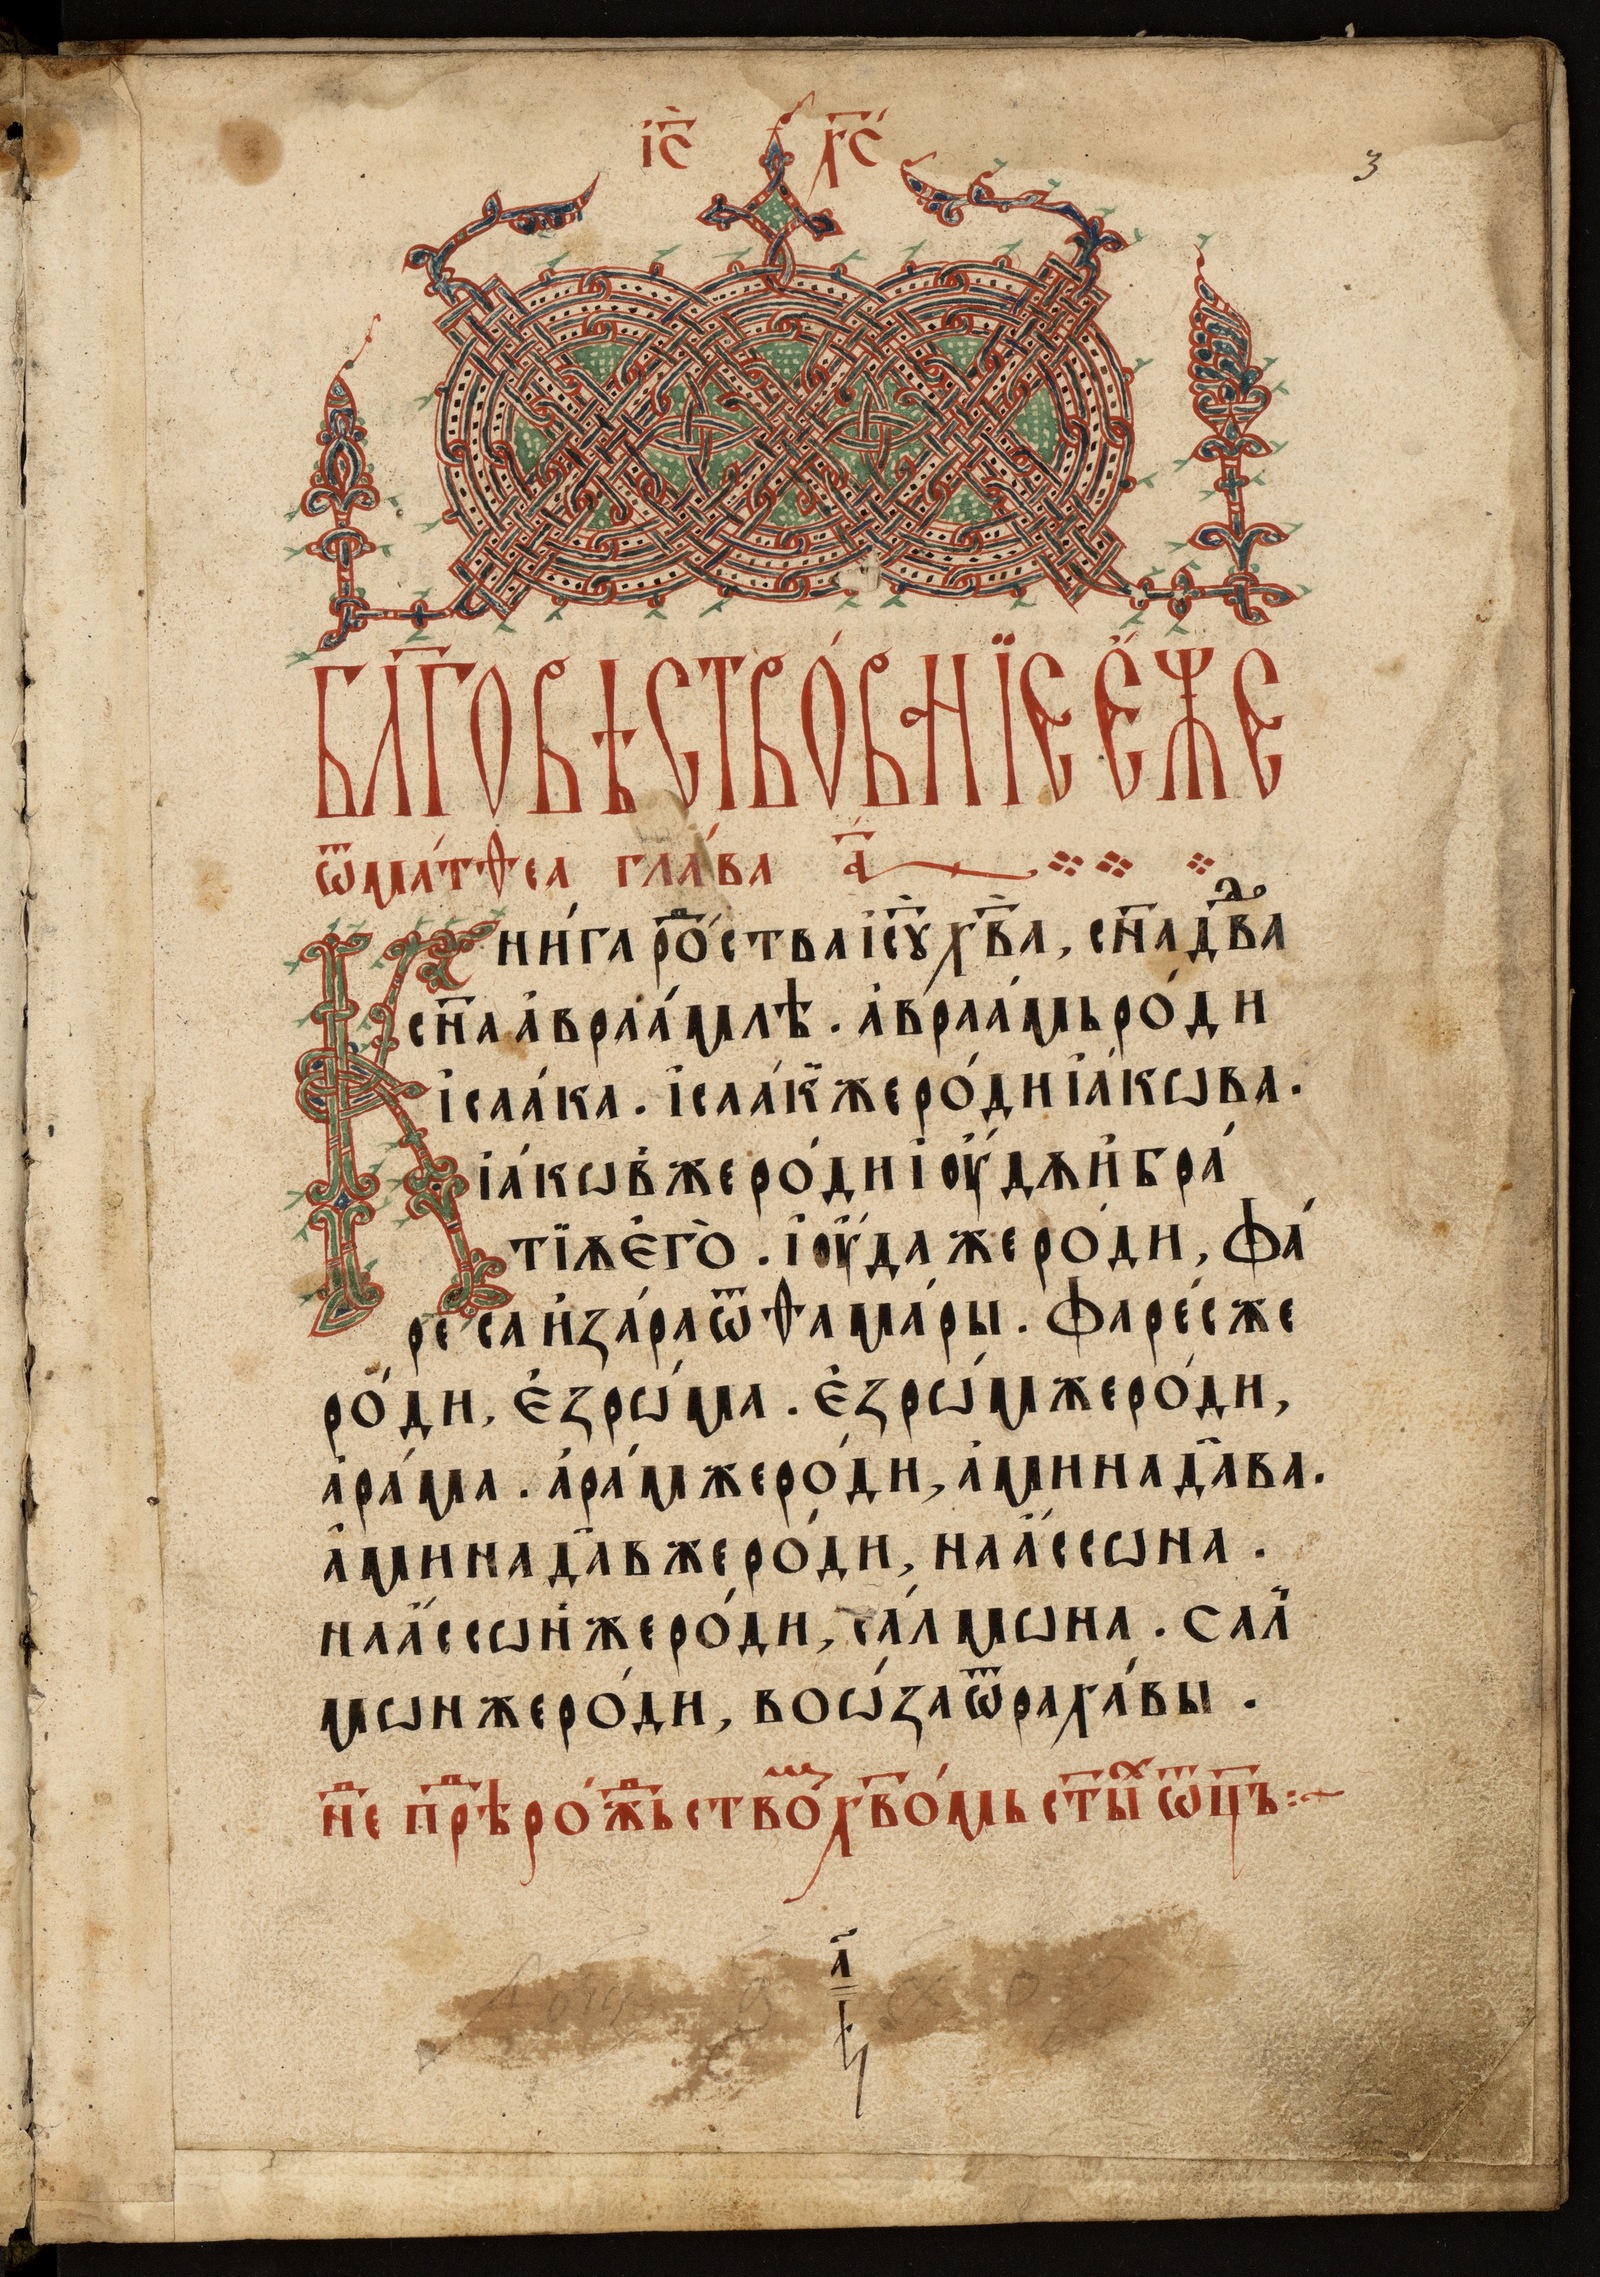 І҃С Х҃С
3
БЛ҃ГОВѢСТВО́ВАНЇЕ Е҆́ЖЕ
ѿма́тѳеа глава́ а҃
Кни́га рⷣо́ства і҆с҃ꙋ х҃в҃а, сн҃а дв҃два
сн҃а а҆враа́млѣ . а҆враа́мь ро́ди
і҆саа́ка . і҆саа́к же ро́ди іа́кѡва .
іа́кѡв же ро́ди і҆ѹ́дѫ и҆ бра́
тїѫ є҆го̀ . і҆ѹ́да же ро́ди, Фа́
ре́са и҆ за́ра ѿ ѳама́ры . Фаре́с же
ро́ди, є҆зрѡ́ма . є҆зрѡ́м же ро́ди,
а҆ра́ма . а҆ра́м же ро́ди, а҆мина да́ва .
а҆мина да́в же ро́ди, наа́ссѡна .
наа́ссѡн же ро́ди, са́лмѡна . Сал
мѡн же ро́ди, воѡ́за ѿ раха́вы .
нⷣе прⷣѣ ро́жⷣьствоⷨ х҃во́мь ст҃ыⷯ ѿц҃ъ :~
а҃